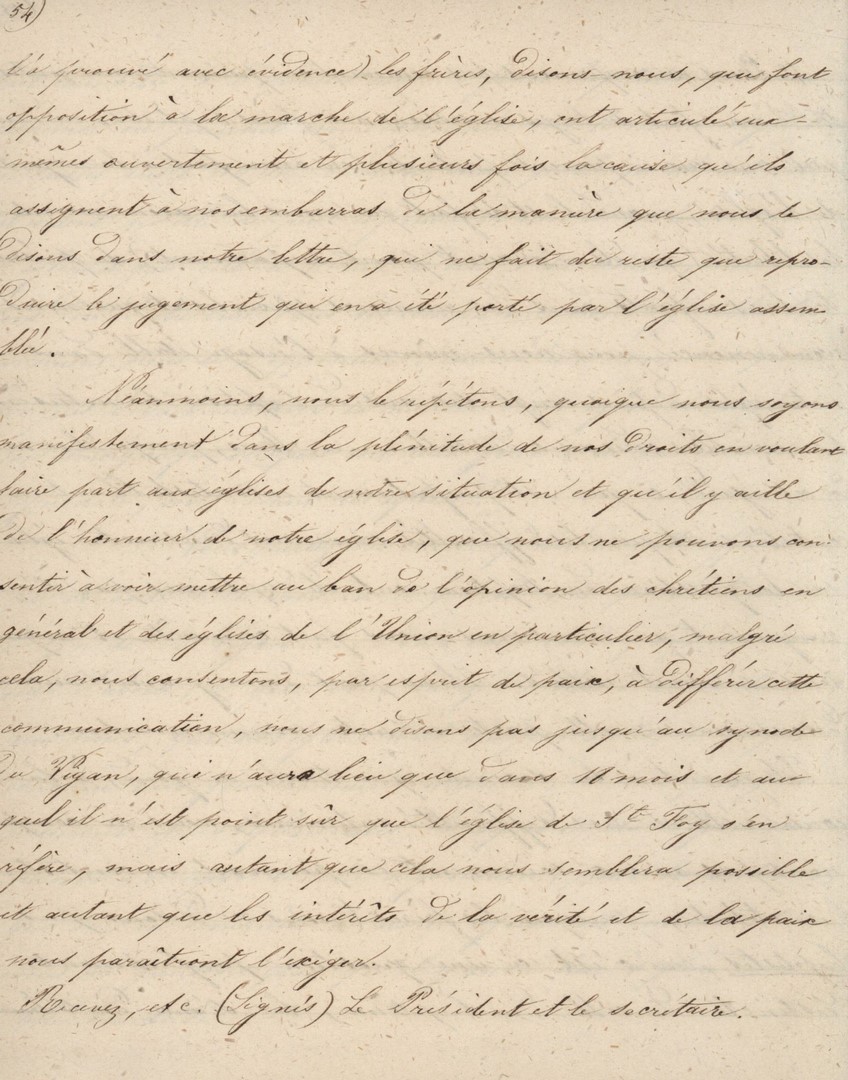 54)
l'a prouvé avec évidence) les frères, disons-nous, qui font
opposition à la marche de l'église, ont articulé eux-
mêmes ouvertement et plusieurs fois la cause qu'ils
assignent à nos embarras de la manière que nous le
disons dans notre lettre, qui ne fait du reste que repro-
duire le jugement qui en a été porté par l'église assem-
blée.
Néanmoins, nous le répétons, quoique nous soyons
manifestement dans la plénitude de nos droits en voulant
faire part aux églises de notre situation et qu'il y aille
de l'honneur de notre église, que nous ne pouvons con-
sentir à voir mettre au ban de l'opinion des chrétiens en
général et des églises de l'Union en particulier, malgré
cela, nous consentons, par esprit de paix, à différer cette
communication, nous ne disons pas jusqu'au synode
du Vigan, qui n'aura lieu que dans 18 mois et au-
quel il n'est point sûr que l'église de Ste Foy s'en
réfère, mais autant que cela nous semblera possible
et autant que les intérêts de la vérité et de la paix
nous paraîtront l'exiger.
Recevez, etc. (Signés) Le Président et le secrétaire.